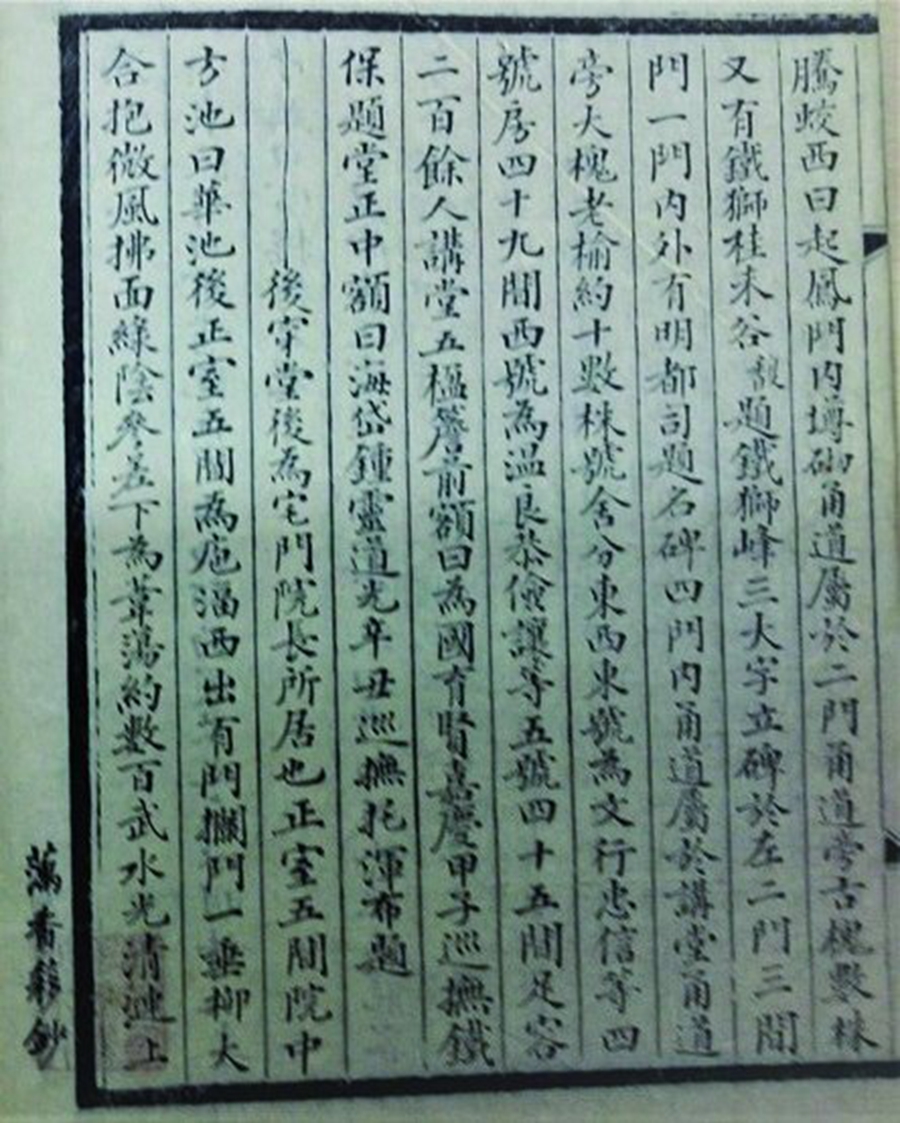 騰蛟西曰起鳳門內塼砌甬道屬於二門甬道旁古槐數株
又有鐵獅桂未谷馥題鐵獅峰三大字立碑於左二門三間
門一門內外有明都司題名碑四門內甬道屬於講堂甬道
旁大槐老榆約十數株號舍分東西東號為文行忠信等四
號房四十九間西號為溫良恭儉讓等五號四十五間足容
二百餘人講堂五楹簷前額曰為國育賢嘉慶甲子巡撫鐵
保題堂正中額曰海岱鍾靈道光辛丑巡撫托渾布題
後穿堂後為宅門院長所居也正室五間院中
方池曰華池後正室五間為庖湢西出有門攔門一垂柳大
合抱微風拂面綠陰參差下為葦蕩約數百武水光清漣上
藕香簃鈔